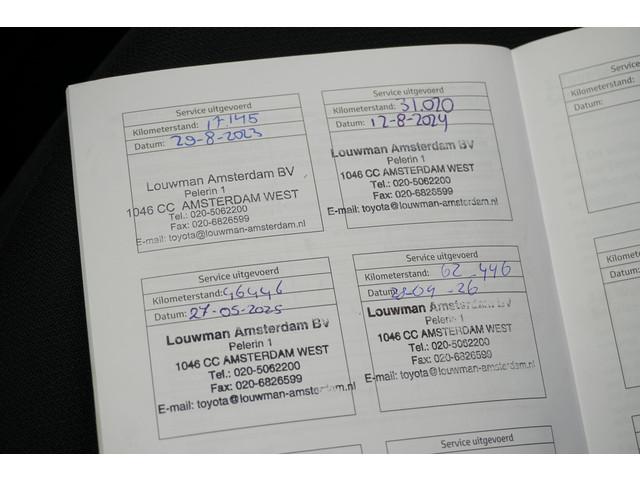 Service uitgevoerd
Kilometerstand: 17145
Datum: 29-8-2023
Louwman Amsterdam BV
Pelerin 1
1046 CC AMSTERDAM WEST
Tel.: 020-5062200
Fax: 020-6826599
E-mail: toyota@louwman-amsterdam.nl
Service uitgevoerd
Kilometerstand: 31.020
Datum: 12-8-2024
Louwman Amsterdam BV
Pelerin 1
1046 CC AMSTERDAM WEST
Tel.: 020-5062200
Fax: 020-6826599
E-mail: toyota@louwman-amsterdam.nl
Service uitgevoerd
Kilometerstand: 46446
Datum: 27-05-2025
Louwman Amsterdam BV
Pelerin 1
1046 CC AMSTERDAM WEST
Tel.: 020-5062200
Fax: 020-6826599
E-mail: toyota@louwman-amsterdam.nl
Service uitgevoerd
Kilometerstand: 62-446
Datum: -04-26
Louwman Amsterdam BV
Pelerin 1
1046 CC AMSTERDAM WEST
Tel.: 020-5062200
Fax: 020-6826599
E-mail: toyota@louwman-amsterdam.nl
Service uitgevoerd
Service
Kilometerstand:
Datum:
Kilometer
Datum:
Service uitgevoerd